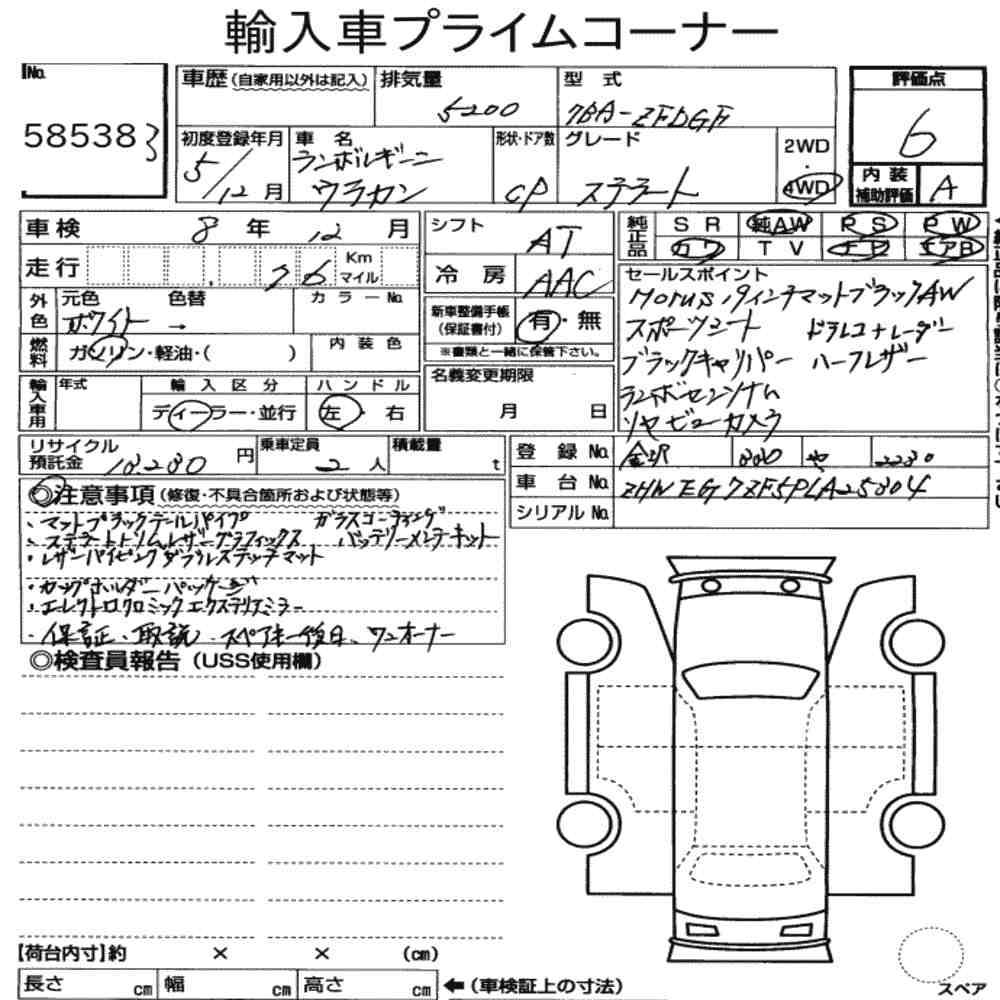 輸入車プライムコーナー
No.
58538 3
車歴 (自家用以外は記入)
排気量
5200
型 式
7BA-ZFDGF
評価点
6
初度登録年月
5/12月
車 名
ランボルギーニ
ウラカン
形状・ドア数
CP
グレード
ステラート
2WD
・
4WD
内 装
補助評価
A
車検 8 年 12 月
シフト
AT
純正品
SR 純AW PS PW
カワ TV ナビ エアB
走行 , 76 Km
マイル
冷 房 AAC
セールスポイント
Horus 19インチマットブラックAW
スポーツシート ドラレコナレーダー
ブラックキャリパー ハーフレザー
ランボセンソナム
リヤビューカメラ
外色
元色 色替 カラーNo.
ホワイト →
新車整備手帳
(保証書付)
有・無
※書類と一緒に保管下さい。
燃料
ガソリン・軽油・( )
内 装 色
輸入車用
年式
輸 入 区 分
ディーラー・並行
ハ ン ド ル
左 ・ 右
名義変更期限
月 日
リサイクル
預託金
18280 円
乗車定員
2 人
積載量
t
登 録 No. 金沢 330 や 2230
車 台 No. ZHWEG7ZF5PLA25304
シリアル No.
◎注意事項 (修復・不具合箇所および状態等)
、マットブラックテールパイプ ガラスコーティング
、ステラートトリムレザーグラフィックス バッテリーメンテキット
・レザーパイピング ダブルステッチマット
・カップホルダーパッケージ
・エレクトロクロミックエクステリアミラー
・保証、取説、スペアキー後日、ワンオーナー
◎検査員報告 (USS使用欄)
【荷台内寸】約 × × (cm)
長さ cm 幅 cm 高さ cm
←(車検証上の寸法)
スペア